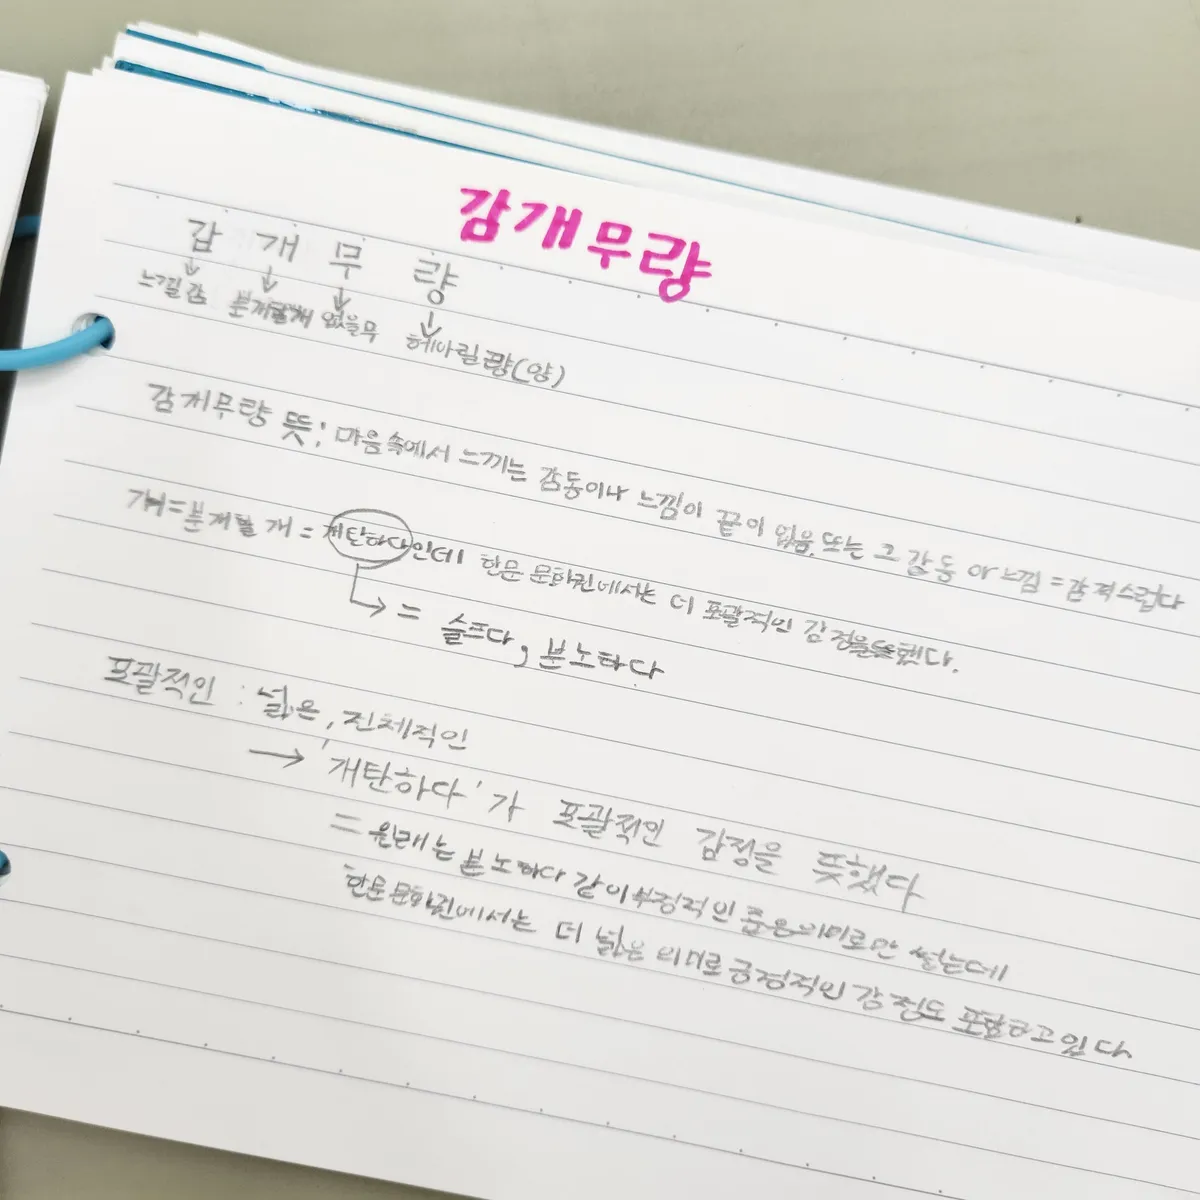 감개무량
감 개 무 량
느낄 감 분개할 개 없을 무 헤아릴 량(양)
감개무량 뜻: 마음속에서 느끼는 감동이나 느낌이 끝이 없음. 또는 그 감동 아 느낌 = 감격스럽다
개=분개할 개 = 개탄하다인데 한문 문화권에서는 더 포괄적인 감정을 뜻했다.
= 슬프다, 분노하다
포괄적인 : 넓은, 전체적인
→ '개탄하다'가 포괄적인 감정을 뜻했다
= 원래는 분노하다 같이 부정적인 좁은 의미로만 썼는데
한문 문화권에서는 더 넓은 의미로 긍정적인 감정도 포함하고 있다